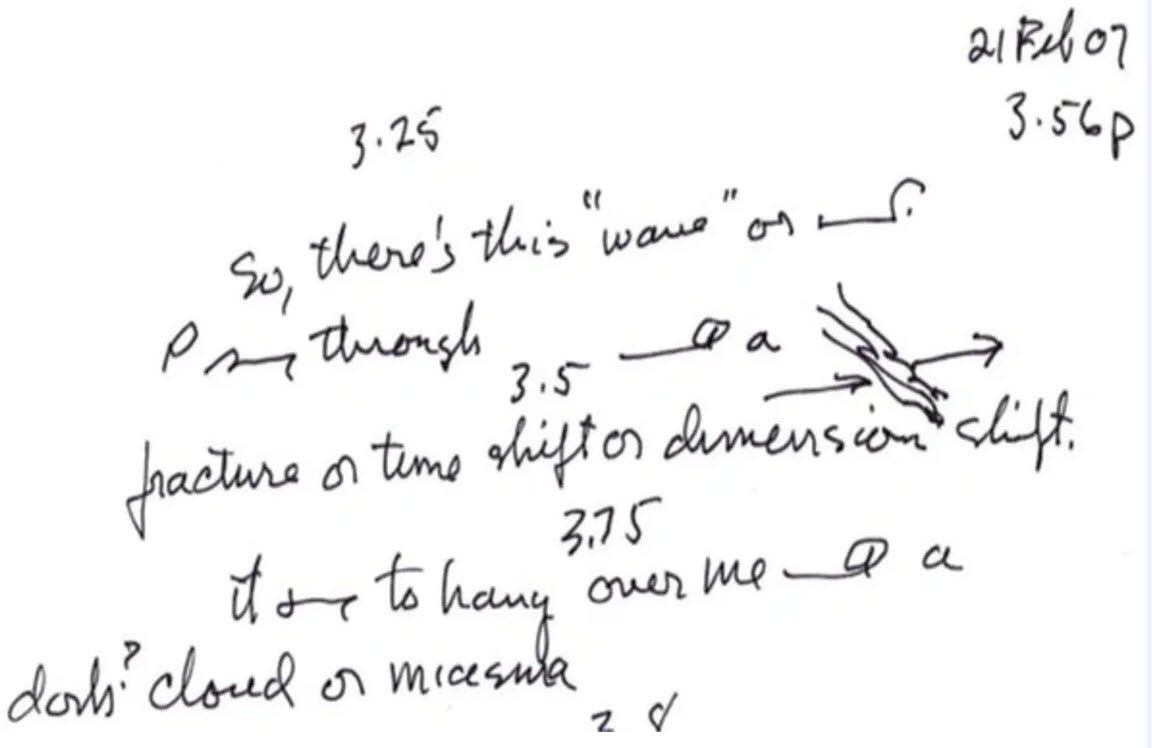 21 Feb 07
3.56p
3.25
So, there's this "wave" or
P through a
3.5
fracture or time shift or dimension shift.
3.75
it to hang over me a
dark? cloud or miasma
3.8